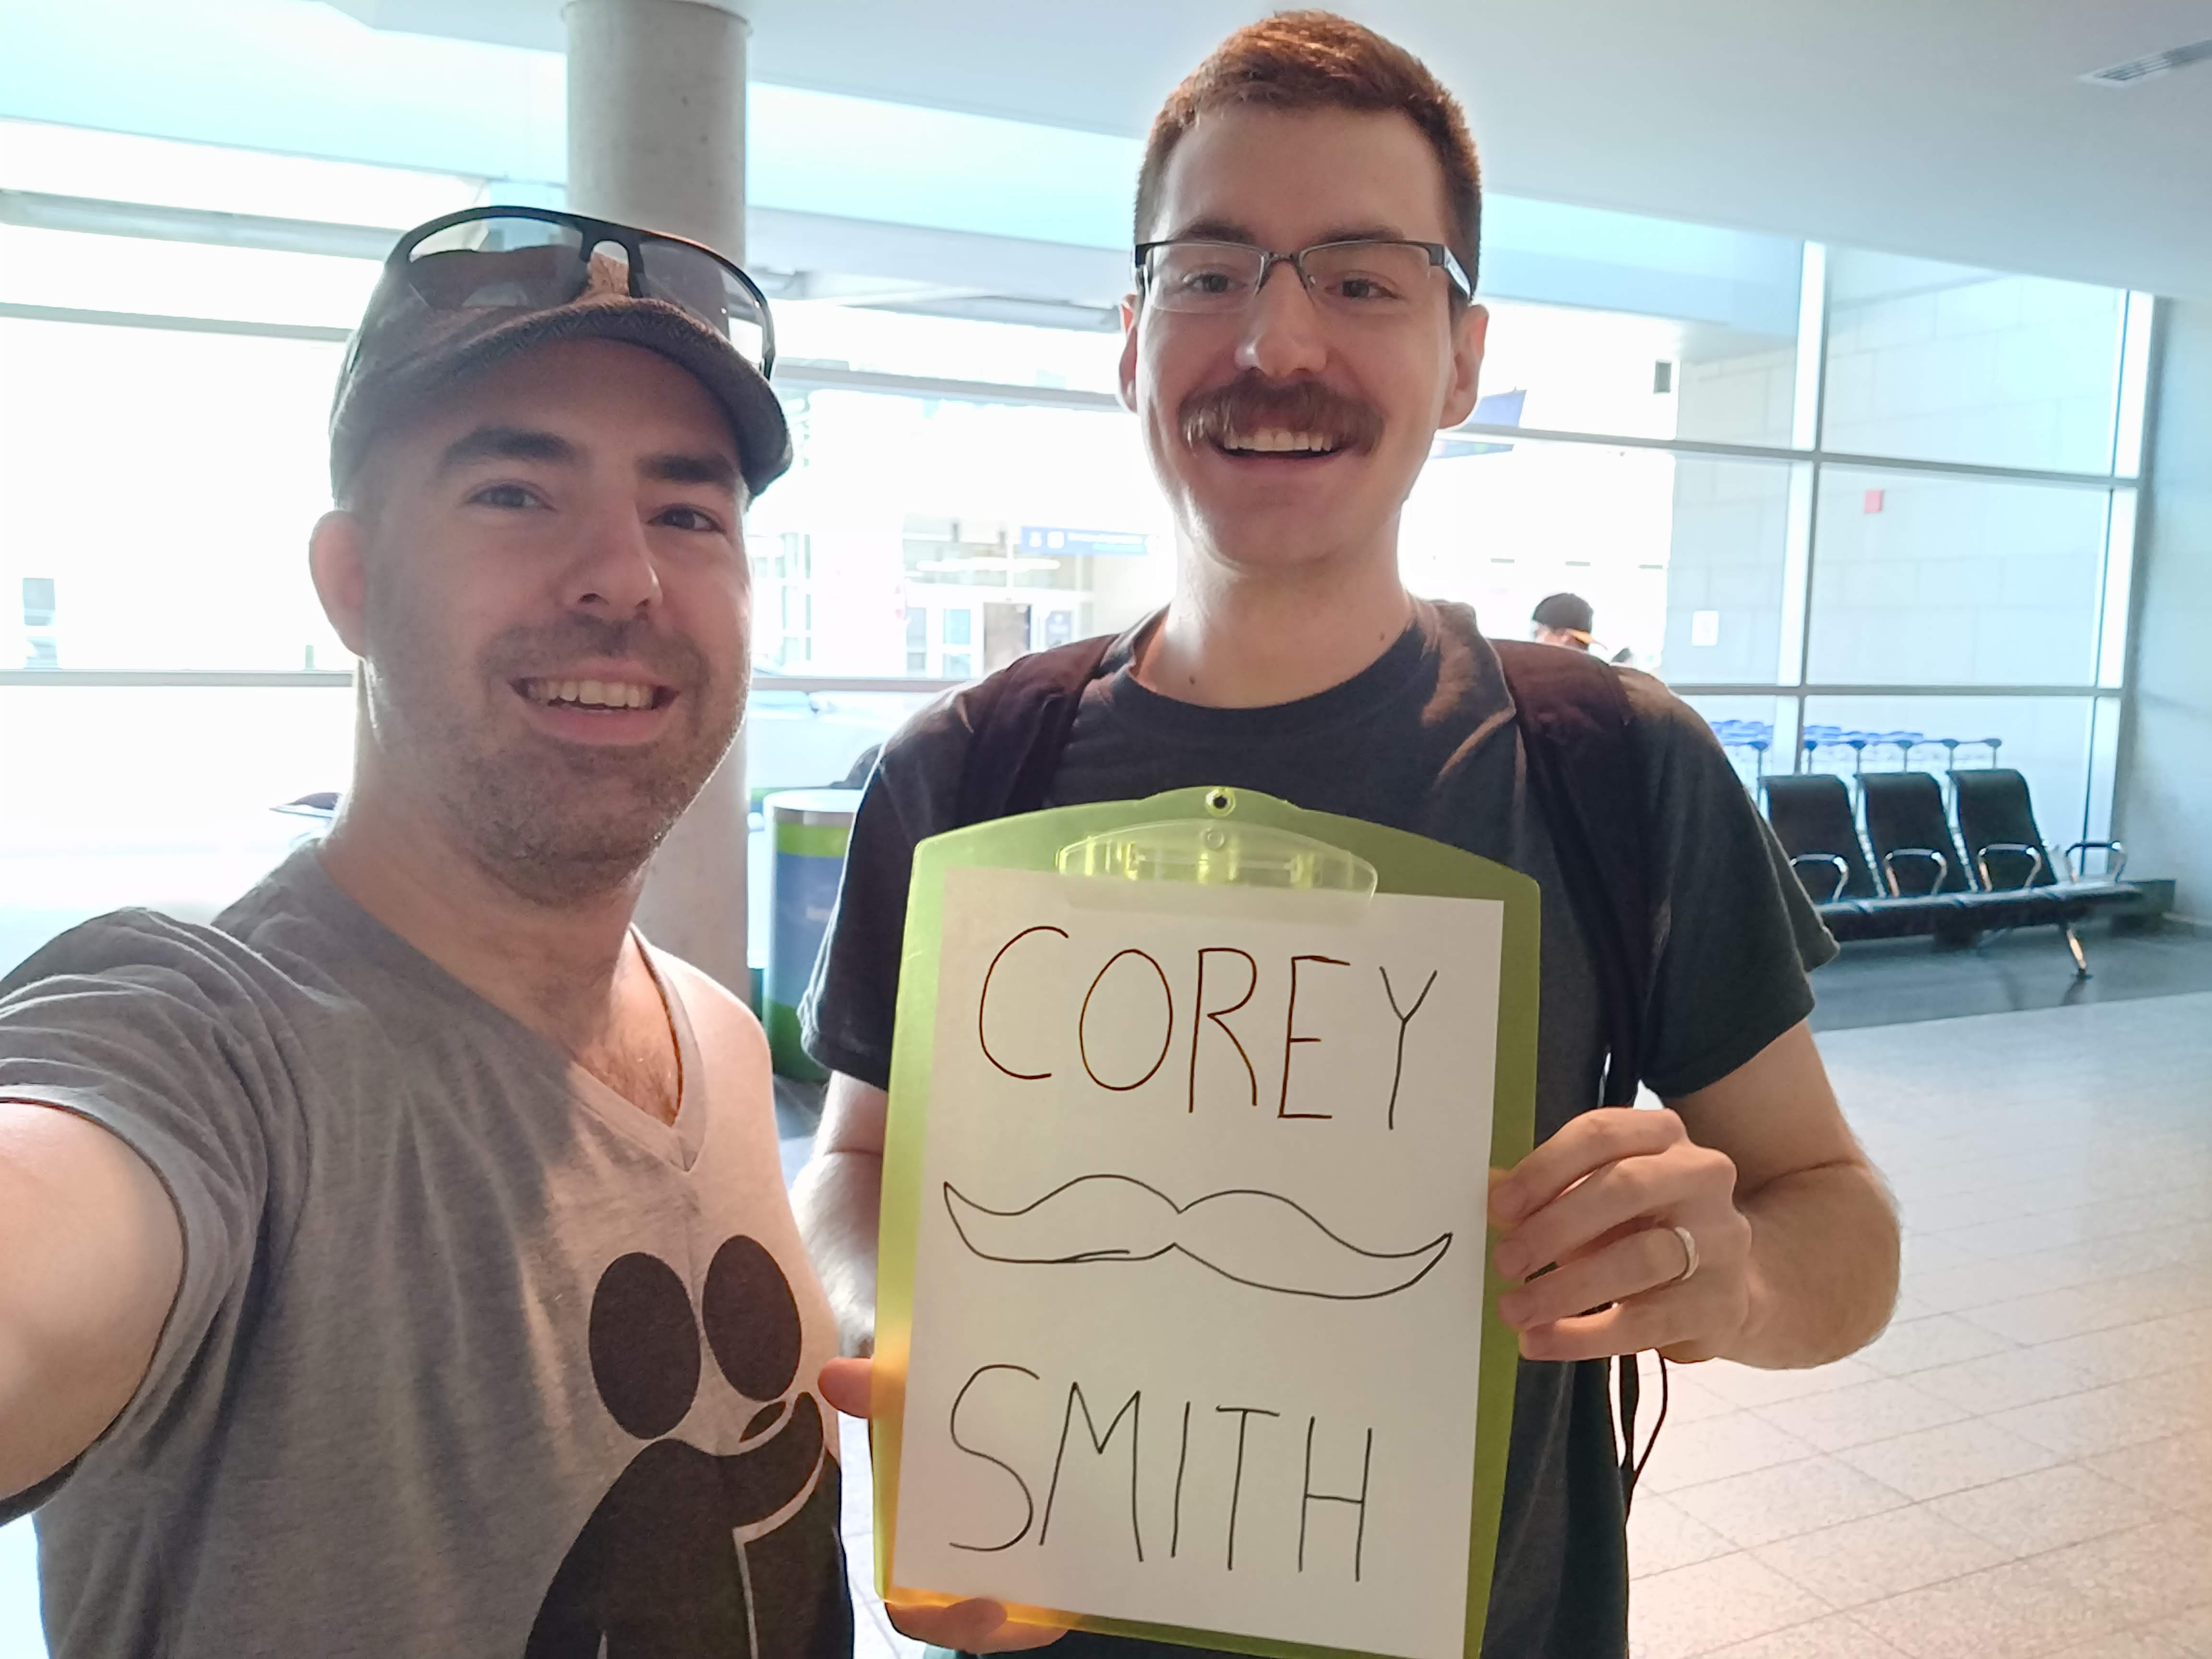 COREY
SMITH